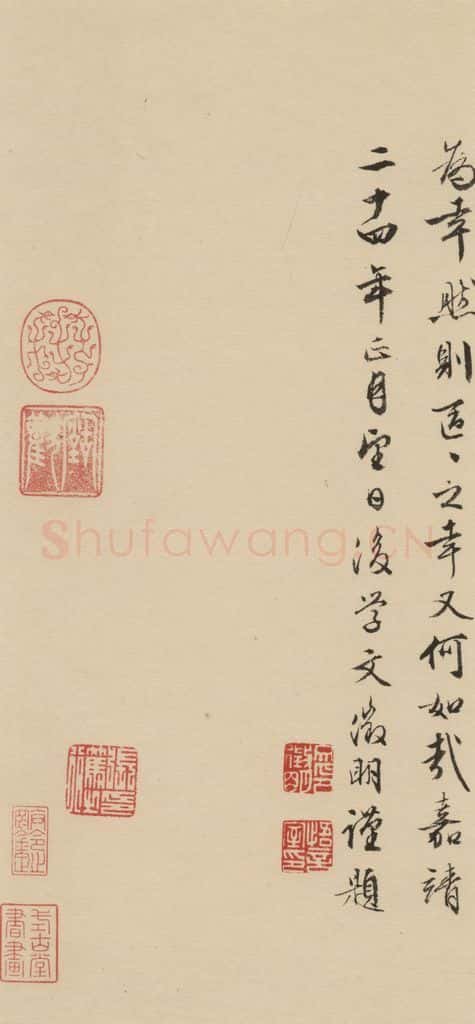 為幸然則區〻之幸又何如哉嘉靖
二十四年正月望日後学文徵明謹題
Shufawang.CN